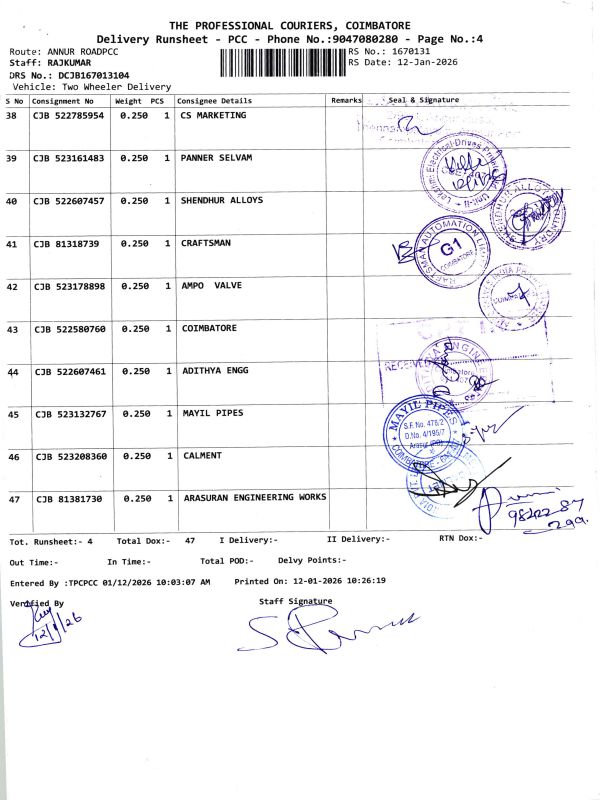 THE PROFESSIONAL COURIERS, COIMBATORE
Delivery Runsheet - PCC - Phone No.:9047080280 - Page No.:4
Route: ANNUR ROADPCC RS No.: 1670131
Staff: RAJKUMAR RS Date: 12-Jan-2026
DRS No.: DCJB167013104
Vehicle: Two Wheeler Delivery
S No Consignment No Weight PCS Consignee Details Remarks Seal & Signature
38 CJB 522785954 0.250 1 CS MARKETING
39 CJB 523161483 0.250 1 PANNER SELVAM
40 CJB 522607457 0.250 1 SHENDHUR ALLOYS
41 CJB 81318739 0.250 1 CRAFTSMAN
G1
COIMBATORE
42 CJB 523178898 0.250 1 AMPO VALVE
43 CJB 522580760 0.250 1 COIMBATORE
RECEIVED
44 CJB 522607461 0.250 1 ADITHYA ENGG
45 CJB 523132767 0.250 1 MAYIL PIPES
MAYIL PIPES
S.F. No. 476/2
D.No. 4/195/7
46 CJB 523208360 0.250 1 CALMENT
47 CJB 81381730 0.250 1 ARASURAN ENGINEERING WORKS
98422 87
299.
Tot. Runsheet:- 4 Total Dox:- 47 I Delivery:- II Delivery:- RTN Dox:-
Out Time:- In Time:- Total POD:- Delvy Points:-
Entered By :TPCPCC 01/12/2026 10:03:07 AM Printed On: 12-01-2026 10:26:19
Verified By Staff Signature
12/1/26